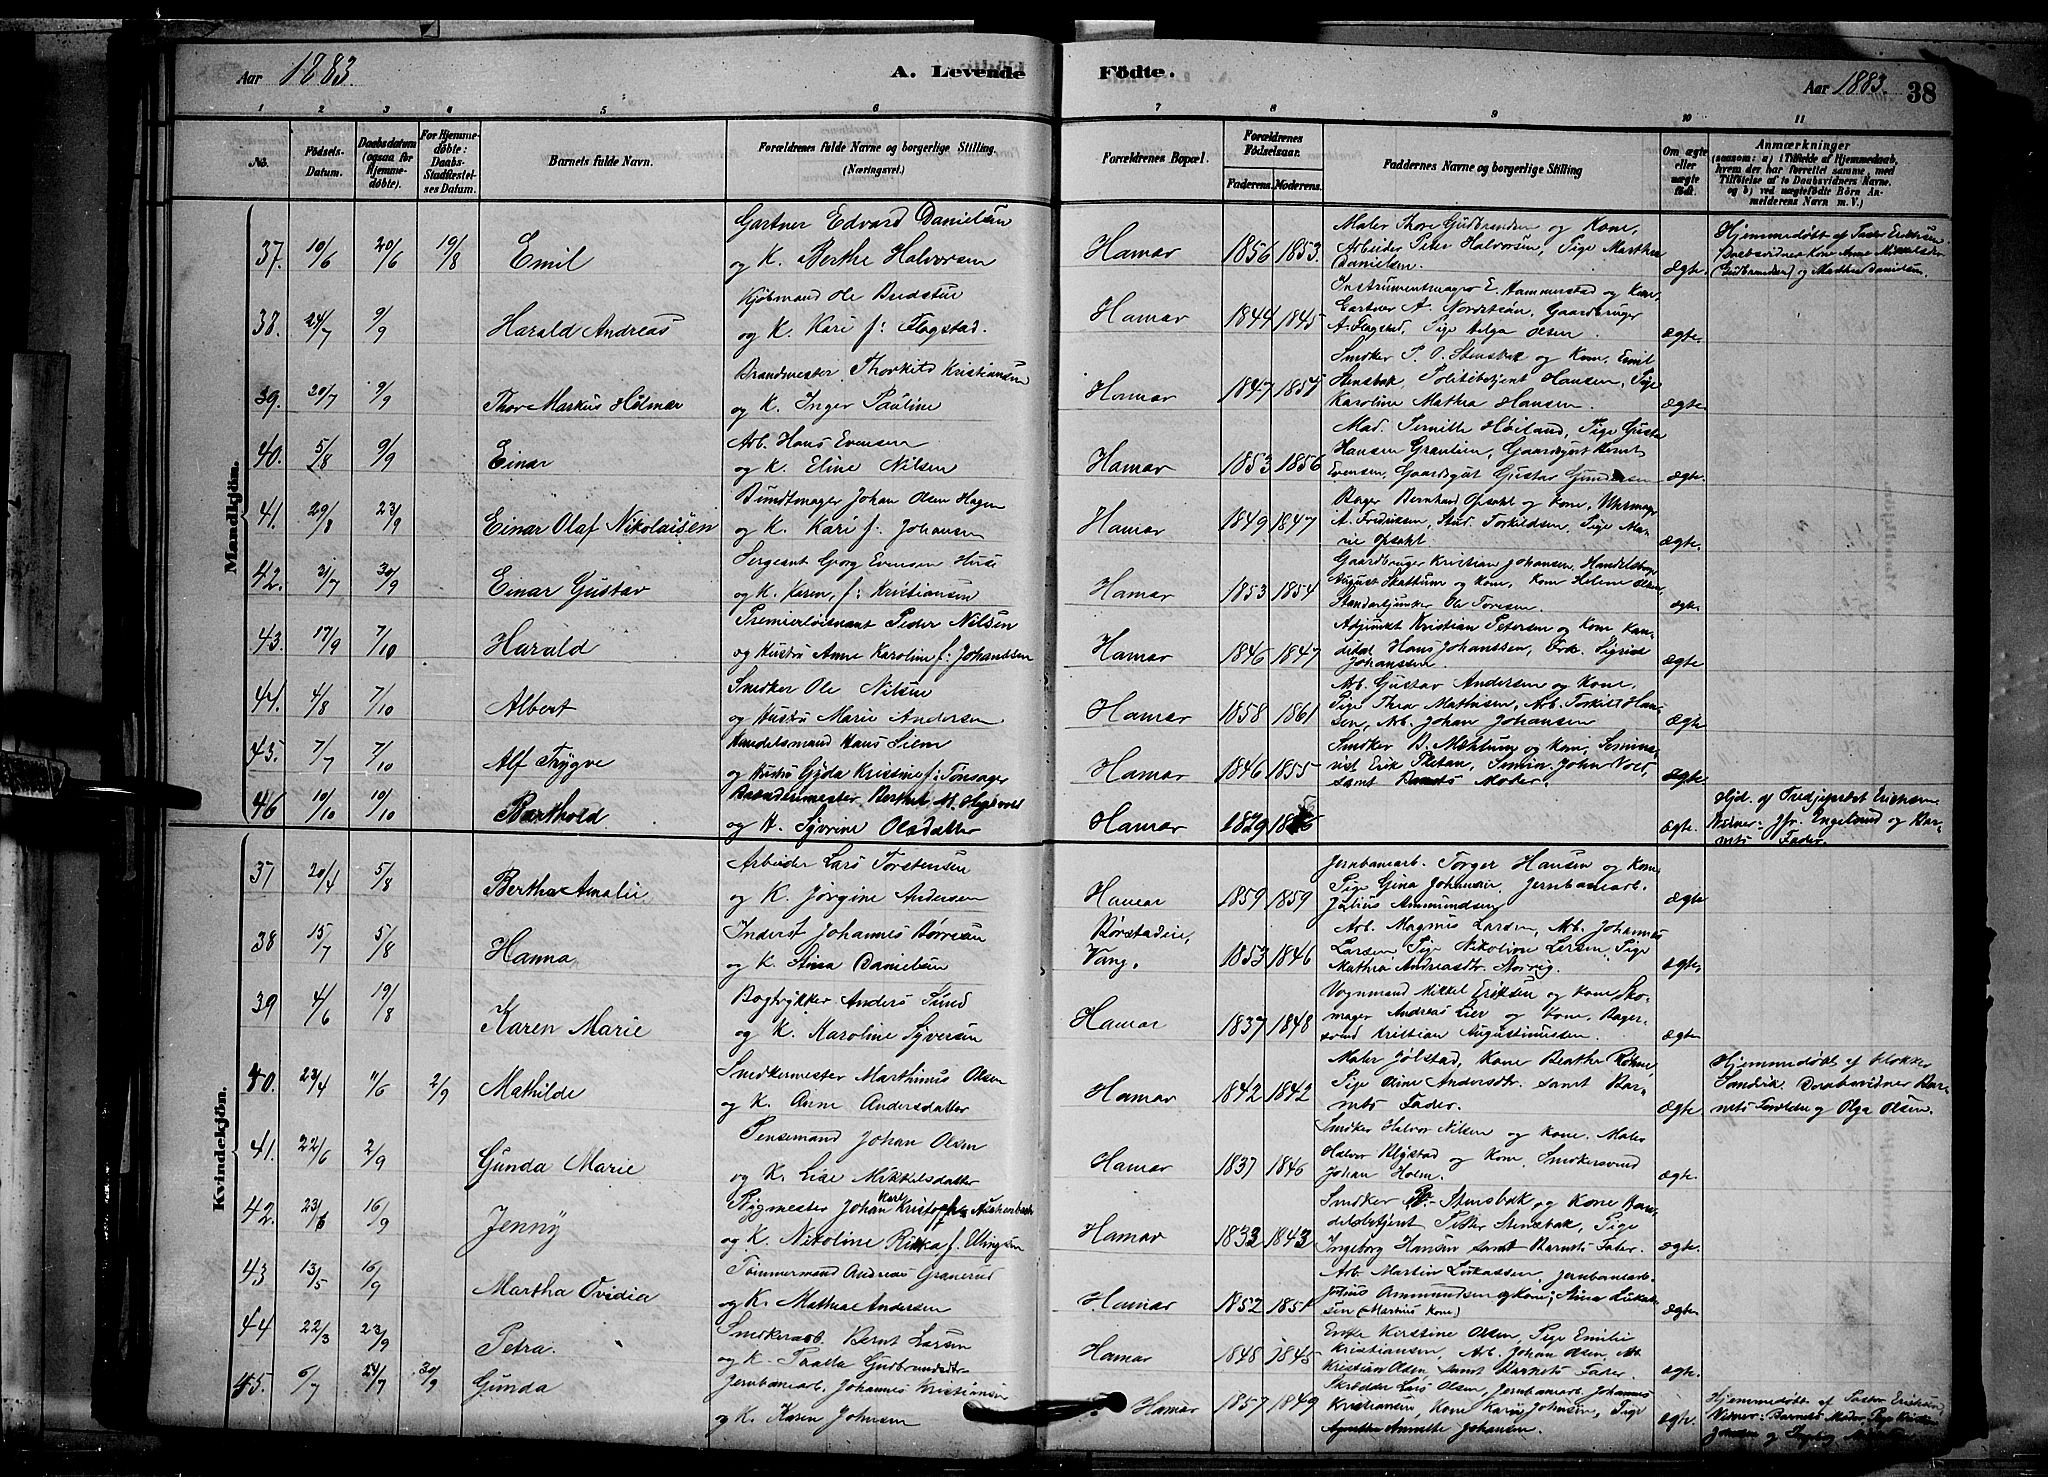 Aar 1883. A. Levende Födte. Aar 1883. 38
1 2 3 4 5 6 7 8 9 10 11
No. Födsels-Datum. Daabsdatum (ogsaa for Hjemmedöbte). For Hjemmedöbte: Daabs-Stadfæstelses Datum. Barnets fulde Navn. Forældrenes fulde Navne og borgerlige Stilling. (Næringsvei.) Forældrenes Bopæl. Forældrenes Födselsaar. Faderens. Moderens. Faddernes Navne og borgerlige Stilling Om ægte eller uægte födt. Anmærkninger (saasom: a) i Tilfælde af Hjemmedaab, hvem der har forrettet samme, med Tilföielse af to Daabsvidners Navne. og b) ved uægtefödte Börn Anmelderens Navn m. V.)
Mandkjön.
37. 10/6 20/6 19/8 Emil Gartner Edvard Danielsen
og K. Berthe Halvorsen Hamar 1856 1853. Maler Thore Gudbrandsen og Kone,
Arbeider Peter Halvorsen, Pige Marthea
Danielsen. ægte. Hjemmedøbt af Pastor Ericksen.
Daabsvidner Kone Anne
(Gudbrandsen) og Mathea Danielsen
38. 24/7 9/9 Harald Andreas Kjøbmand Ole Bredstue
og K. Kari f: Flagstad. Hamar 1844 1845 Instrumentmager E. Hammerstad og Kone,
Gartner A. Gaardbruger
A. Flagstad, Pige Helga Olsen. ægte.
39. 20/7 9/9 Thor Markus Hilmar Brandmester Thorkild Kristiansen
og K. Inger Pauline Hamar 1847 1854 Snedker P. O. Stensbak og Kone, Emil
Stensbak, Politibetjent Hansen, Pige
Karoline Mathea Hansen. ægte.
40. 5/8 9/9 Einar Arb. Hans Evensen
og K. Eline Nilsen Hamar 1853 1856 Mad. Pernille Høiland, Pige Gusta
Hansen Granlien, Gaardsgut Bernt
Evensen, Gaardsgut Gustav Gundersen ægte.
41. 29/8 23/9 Einar Olaf Nikolaisen Bundtmager Johan Olsen Hagen
og K. Kari f. Johansen Hamar 1849 1847 Bager Bernhard Opsahl og Kone, Uhrmager
A. Fredriksen, Stud. Torkildsen, Pige Ma-
rie Opsahl ægte.
42. 31/7 30/9 Einar Gustav Sergeant Georg Evensen Huse
og K. Karen, f: Kristiansen Hamar 1853 1854 Gaardbruger Kristian Johansen, Handelsbog.
August Skattum og Kone, Kone Helene Olsen,
Standartjunker Ole Toresen. ægte
43. 17/9 7/10 Harald Premierløitnant Peder Nilsen
og Hustru Anne Karoline f: Johanssen Hamar 1846 1847 Adjunkt Kristian Petersen og Kone Kan-
didat Hans Johanssen, Frk. Sigrid
Johanssen. ægte
44. 4/8 7/10 Albert Snedker Ole Nilsen
og Hustru Marie Andersen Hamar 1858 1861 Arb. Gustav Andersen og Kone,
Pige Thea Mathisen, Arb. Torkild Han-
sen, Arb. Johan Johansen ægte
45. 7/7 7/10 Alf Trygve Handelsmand Hans Siem
og Hustru Gyda Kristine f: Torsager Hamar 1846 1855 Snedker B. Mæhlum og Kone, Semina-
rist Erik Pletan, Semin. John Vold,
samt Barnets Moder. ægte
46 10/10 10/10 Barthold
og H. Syvrine Olsdatter Hamar 1829 ægte. Hjd. af Tredjeprest Erichsen
Vidner: Jfr. Engelund og Bar-
nets Fader.
Kvindekjön.
37 20/4 5/8 Bertha Amalie Arbeider Lars Torstensen
og K. Jørgine Andersen Hamar 1859 1859 Jernbanearb. Torger Hansen og Kone
Pige Gina Johansen, Jernbanearb.
Julius Ammundsen ægte
38 15/7 5/8 Hanna Inderst Johannes Børresen
og K. Stina Danielsen Børstadeie,
Vang. 1853 1846 Arb. Magnus Larsen, Arb. Johannes
Larsen, Pige Nikoline Larsen, Pige
Mathea Andreasdtr. ægte
39 4/6 19/8 Karen Marie Bogtrykker Anders Sund
og K. Karoline Syversen Hamar 1837 1848 Vognmand Mikkel Eriksen og Kone, Sko-
mager Andreas Lier og Kone, Bager-
svend Kristian Augustinussen. ægte
40. 23/4 11/6 2/9 Mathilde Snedkermester Marthinus Olsen
og K. Anne Andersdatter Hamar 1842 1842 Maler Jølstad, Kone Beathe
Pige Oline Andersdtr. samt Bar-
nets Fader. ægte Hjemmedøbt af Klokker
Sandvik. Daabsvidner Bar-
nets Forældre og Olga Olsen.
41. 22/6 2/9 Gunda Marie Pensemand Johan Olsen
og K. Lise Mikkelsdatter Hamar 1837 1846 Snedker Halvor Nilsen og Kone. Maler
Halvor Blystad og Kone, Snedkersvend
Johan Holm. ægte
42. 23/6 16/9 Jenny Bygmester Johan Karl Kristopher Aschenbach
og K. Nikoline Rikka f. Ellingsen Hamar 1832 1843 Snedker P. O. Stensbak og Kone Han-
delsbetjent Petter Stensbak, Pige
Ingeborg Hansen samt Barnets Fader. ægte.
43 13/5 16/9 Martha Ovidia Tømmermand Andreas Granerud
og K. Mathea Andersen Hamar 1852 1851 Arb. Martin Lukassen, Jernbanearb.
Julius Ammundsen og Kone, Stina Lukas-
sen (Martins Kone) ægte
44 22/3 23/9 Petra. Snedkerarb. Bernt Larsen
og K. Gudbrandsdtr. Hamar 1848 1845 Enke Kirstine Olsen, Pige Emilie
Kristiansen, Arb. Johan Olsen, Arb.
Kristian Olsen, samt Barnets Fader. ægte.
45. 6/7 24/7 30/9 Gunda Jernbanearb. Johannes Kristiansen
og K. Karen Johnsen Hamar 1857 1849 Skrædder Lars Olsen, Jernbanearb. Johannes
Kristiansen, Kone Karen Johnsen, Pige
Annette Johansen. ægte. Hjemmedøbt af Pastor Ericksen
Vidner: Barnets Moder, Pige